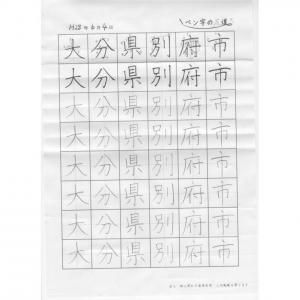 H28年6月4日
ペン字の三道
大分県別府市
大分県別府市
大分県別府市
大分県別府市
大分県別府市
大分県別府市
大分県別府市
大分県別府市